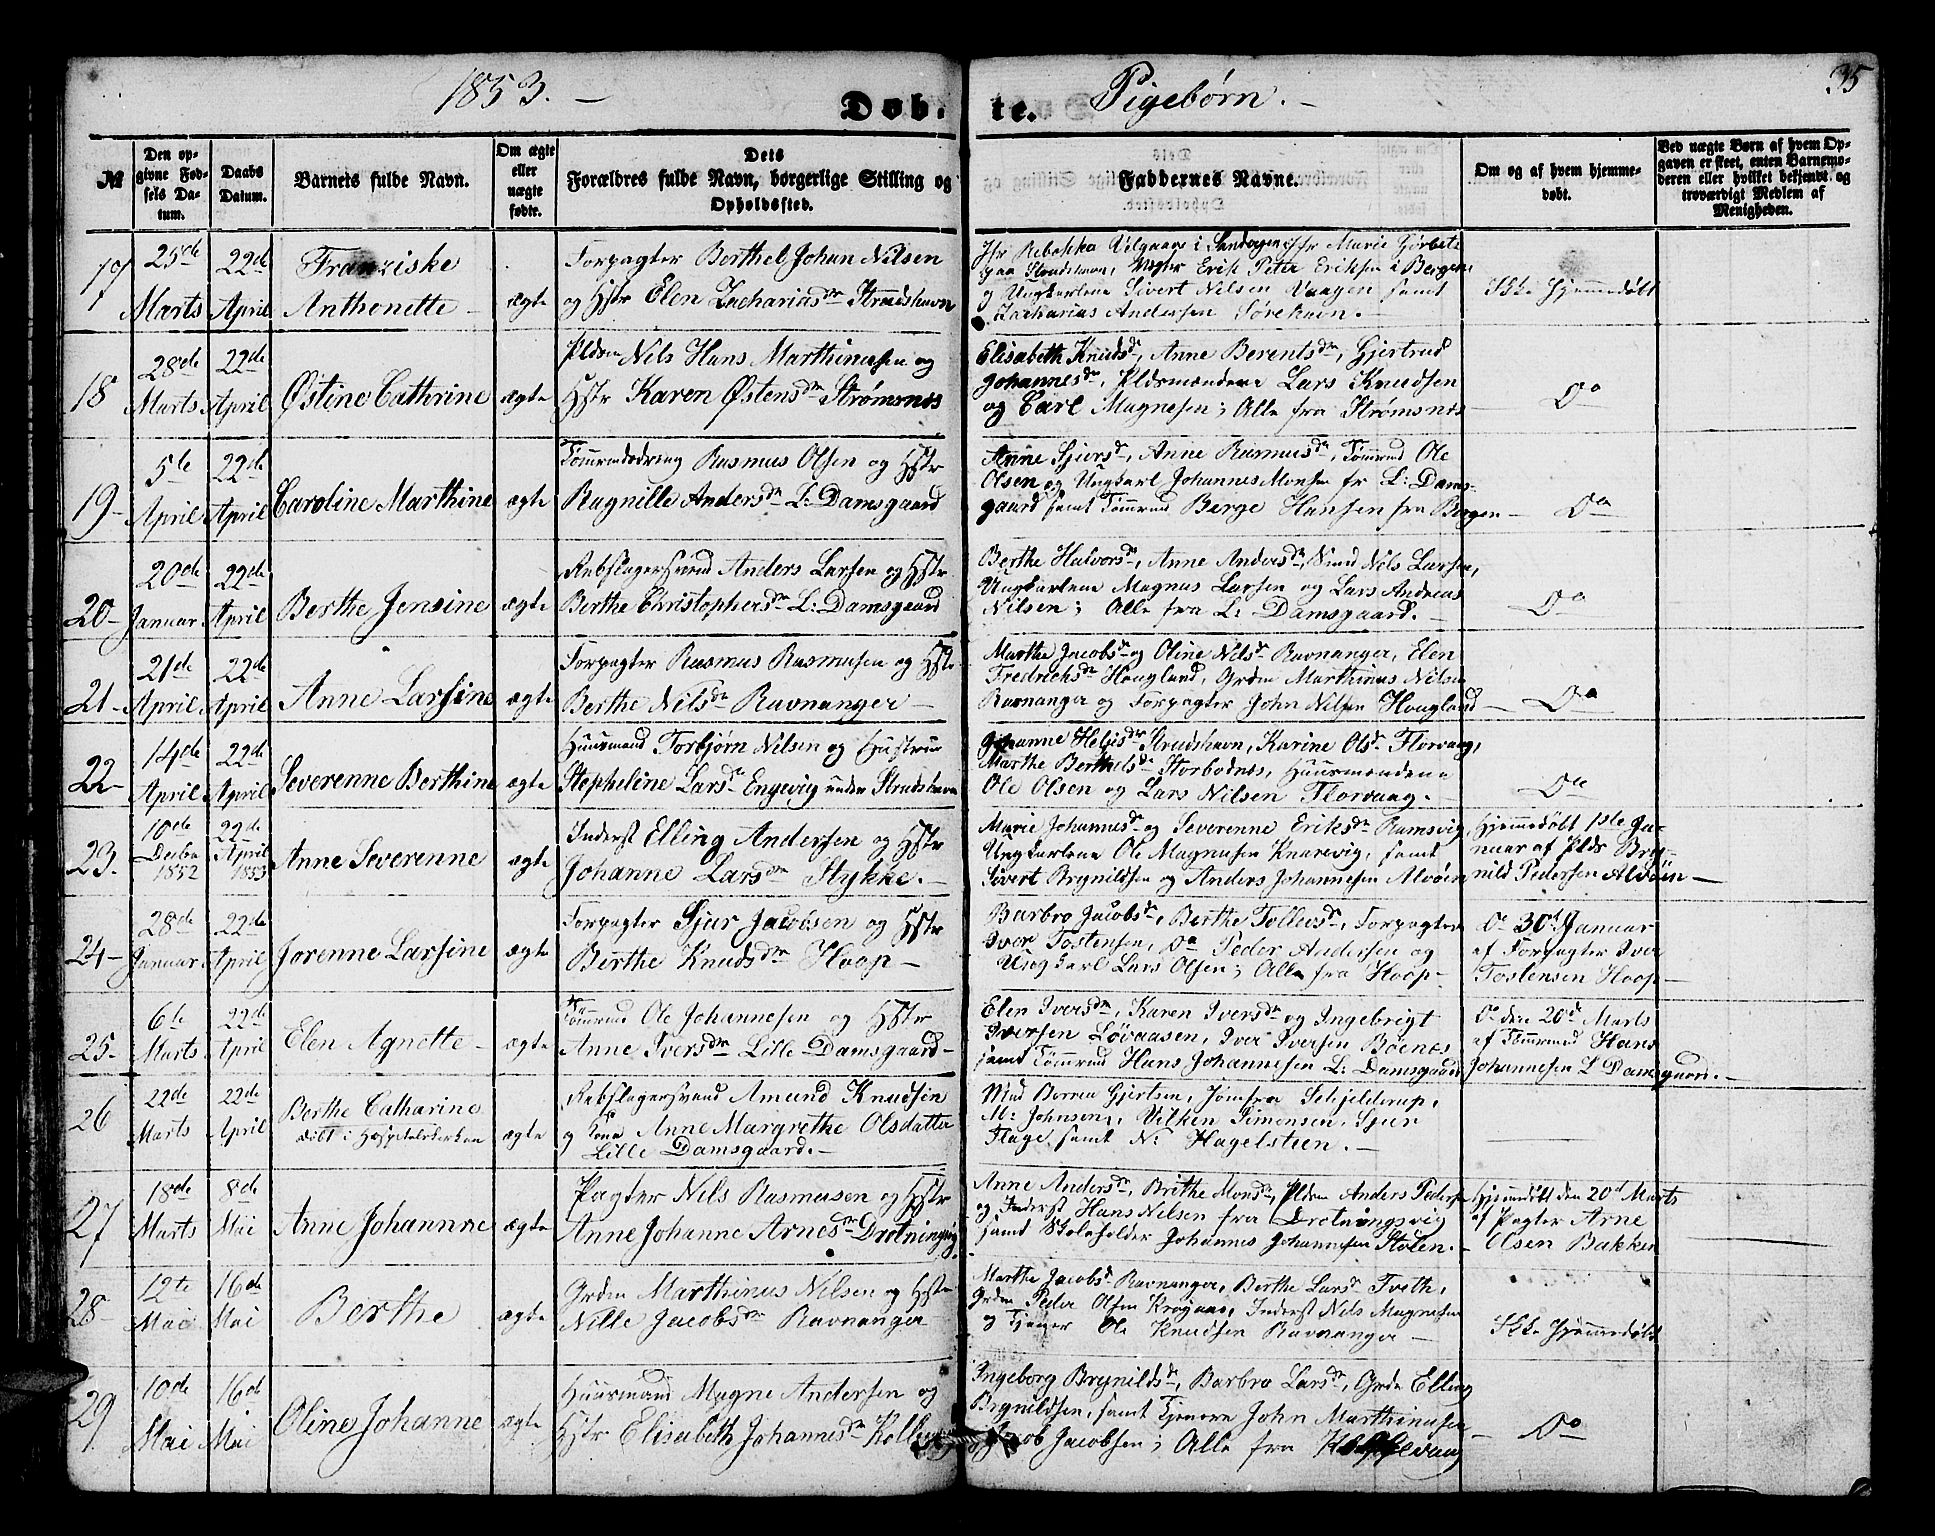 1853. — Døb-te. Pigebørn. — 35
№
Den opgivne Fødsels Datum.
Daabs Datum.
Barnets fulde Navn.
Om ægte eller uægte fødte.
Dets Forældres fulde Navn, borgerlige Stilling og Opholdssted.
Faddernes Navne.
Om og af hvem hjemmedøbt.
Ved uægte Børn af hvem Opgaven er skeet, enten Barnemoderen eller hvilket bekjendt og troværdigt Medlem af Menigheden.
17
25de Marts
22de April
Franziske
Anthonette —
ægte
Forpagter Berthel Johan Nilsen
og Hstr Elen Zachariasdtr Strudshavn
Jfr Rebekka Velgaare i Sandvigen, Jfr Marie
paa Strudshavn, Erik Peter Eriksen i Bergen
og Ungkarlene Sivert Nilsen Vaagen samt
Zacharias Andersen
Ikke Hjemmedøbt
18
28de Marts
22de April
Østine Cathrine
ægte
Pldsm Nils Hans Marthinusen og
Hstr Karen Østensdtr Strømsnes
Elisabeth Knudsdr, Anne Berentsdtr, Gjertrud
Johannesdtr, Pldsmændene Lars Knudsen
og Carl Magnesen; Alle fra Strømsnes —
Do
19-
5te April
22de April
Caroline Marthine
ægte
Tømmndsdreng Rasmus Olsen og Hstr
Ragnille Andersdtr L: Damsgaard
Anne Sjursdr, Anne Rasmusdtr, Tømmd Ole
Olsen og Ungkarl Johannes Monsen fr L: Dams-
gaard samt Tømmd Berge Hansen fra Bergen —
Do
20-
20de Januar
22de April
Berthe Jensine
ægte
Rebslagersvend Anders Larsen og Hstr
Berthe Christophersdtr L: Damsgaard
Berthe Halvorsdr, Anne Andersdtr, Nils Larsen,
Ungkarlene Magnus Larsen og Lars Andreas
Nilsen; Alle fra L: Damsgaard. —
Do
21-
21de April
22de April
Anne Larsine
ægte
Forpagter Rasmus Rasmusen og Hstr
Berthe Nilsdtr Ravnanger —
Marthe Jacobsdr og Oline Nilsdr Ravnanger, Elen
Fredrichsdtr Hougland, Grdm Marthinus Nilsen
Ravnanger og Forpagter John Nilsen Hougland —
Do
22-
14de April
22de April
Severenne Berthine
ægte
Huusmand Torbjørn Nilsen og Hustrue
Stepheline Larsdtr Engevig under Strudshavn
Johanne Helgisdtr Strudshavn, Karine Olsdr Florvaag,
Marthe Berthelsdr Storbodnes, Huusmændene
Ole Olsen og Lars Nilsen Florvaag. —
Do
23.
10de Decbr 1852
22de April 1853
Anne Severenne
ægte
Inderst Elling Andersen og Hstr
Johanne Larsdtr Stykke. —
Marie Johannesdr og Severenne Eriksdtr Ramsvig,
Ungkarlene Ole Magnusen Knarrevig, samt
Sivert Brynildsen og Anders Johannesen Alvøen
Hjemmedøbt 1ste Ja-
nuar af Plds Bry-
nild Pedersen Alvøen —
24-
28de Januar
22de April
Jorenne Larsine
ægte
Forpagter Sjur Jacobsen og Hstr
Berthe Knudsdtr Hoop —
Barbro Jacobsdr, Berthe Tollevsdr, Forpagter
Iver Tostensen, Do Peder Andersen og
Ungkarl Lars Olsen; Alle fra Hoop —
Do 30d Januar
af Forpagter Iver
Tostensen Hoop —
25-
6te Marts
22de April
Elen Agnette —
ægte
Tømmd Ole Johannesen og Hstr
Anne Iversdtr Lille Damsgaard —
Elen Iversdtr, Karen Iversdtr og Ingebrigt
Iversen Løvaasen, Iver Iversen Bønes
samt Tømmd Hans Johannesen L: Damsgaard
Do den 20d Marts
af Tømmand Hans
Johannesen L Damsgaard. —
26
22de Marts
22de April
Berthe Catharine
døbt i Hospitalskirken
ægte
Rebslagersvend Amund Knudsen
og Kone Anne Margrethe Olsdatter
Lille Damsgaard. —
Mad Gjertsen, Jomfru Schjelderup,
M: Johnsen, Vilken Simonsen, Sjur
Flage samt N: Hagelsteen. —
27
18de Marts
8de Mai
Anne Johannne
ægte
Pagter Nils Rasmusen og Hstr
Anne Johanne Arnesdtr Drotningsvig
Anne Andersdr, Brithe Monsdr, Pldsm Anders Peders
og Inderst Hans Nilsen fra Drotningsvig
samt Skoleholder Johannes Johannesen Stølen. —
Hjemmedøbt den 20d Marts
af Pagter Arne
Olsen Bakken
28-
12te Mai
16de Mai
Berthe
ægte
Grdm Marthinus Nilsen og Hstr
Nille Jacobsdtr Ravnanger —
Marthe Jacobsdr Ravnanger, Berthe Larsdr Tveth,
Grdm Peder Olsen Krogaas, Inderst Nils Magnesen
og Tjener Ole Knudsen Ravnanger —
Ikke Hjemmedøbt
29
10de Mai
16de Mai
Oline Johanne
ægte
Huusmand Magne Andersen og
Hstr Elisabeth Johannesdtr
Ingeborg Brynildsdr, Barbro Larsdtr, Grdm Elling
Brynildsen, samt Tjenere John Marthinusen
og Jacob Jacobsen; Alle fra
Do